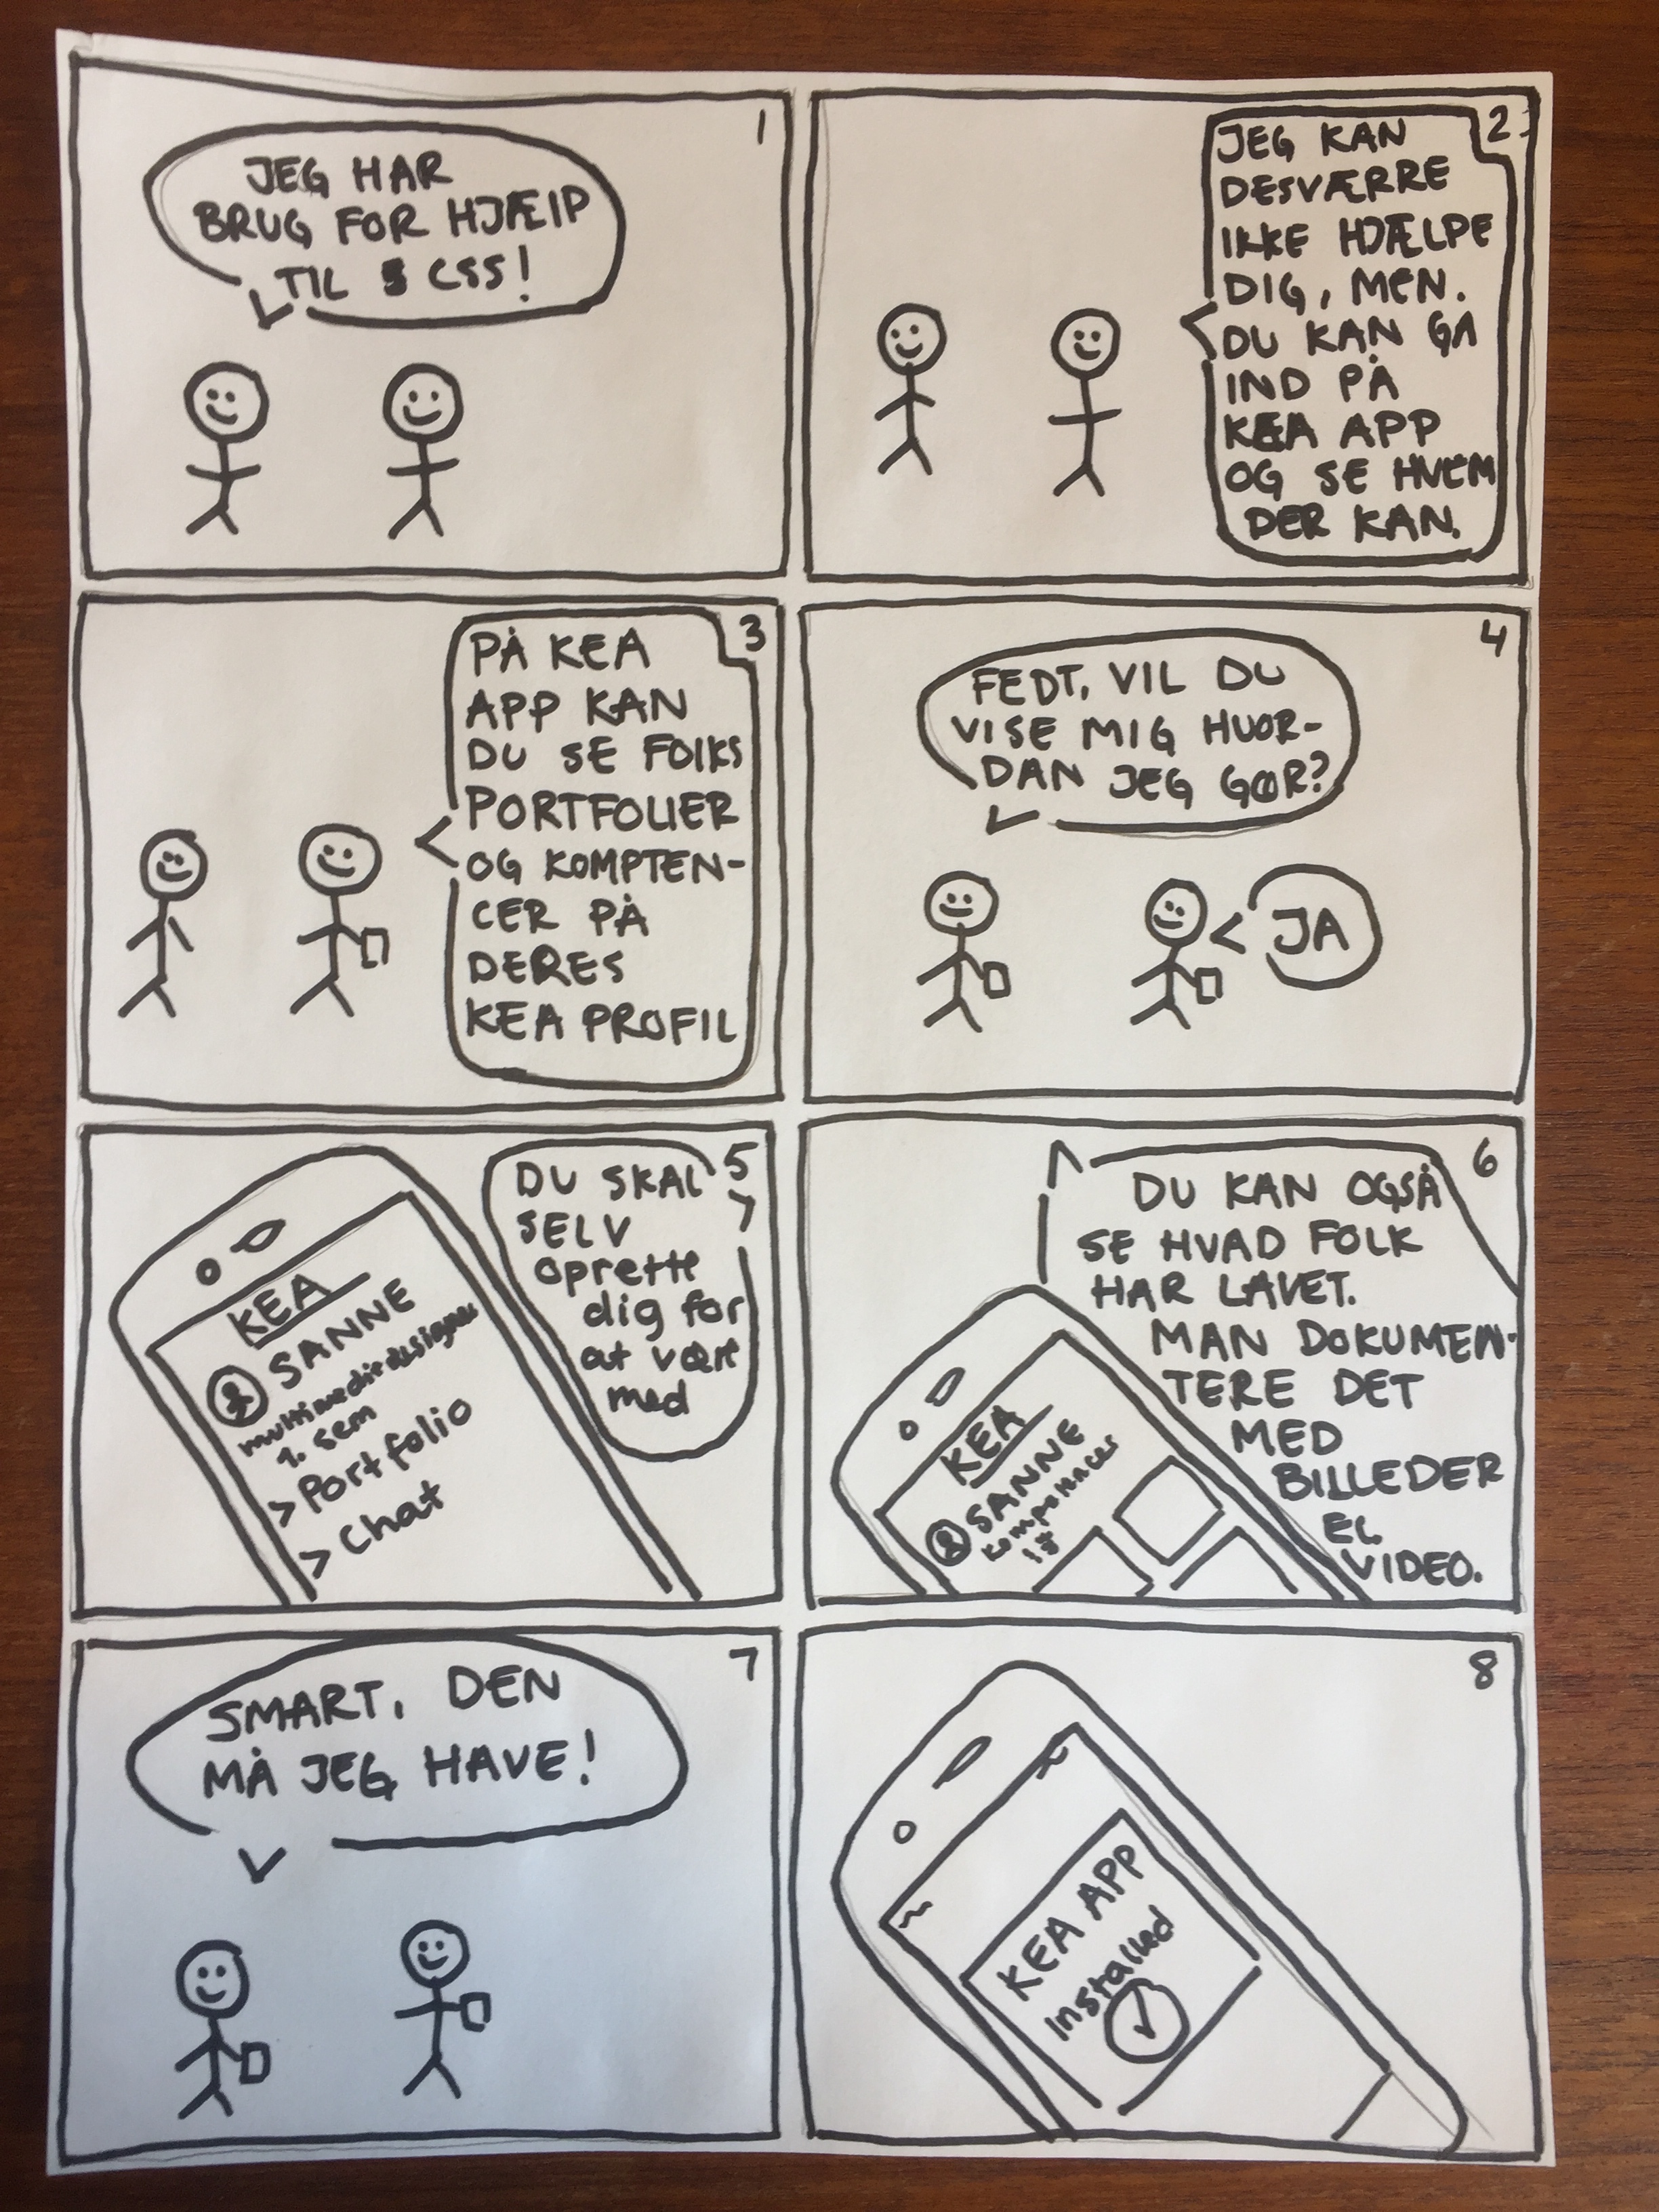 1
JEG HAR
BRUG FOR HJÆLP
TIL CSS!
2
JEG KAN
DESVÆRRE
IKKE HJÆLPE
DIG, MEN.
DU KAN GÅ
IND PÅ
KEA APP
OG SE HVEM
DER KAN.
3
PÅ KEA
APP KAN
DU SE FOLKS
PORTFOLIER
OG KOMPTEN-
CER PÅ
DERES
KEA PROFIL
4
FEDT, VIL DU
VISE MIG HVOR-
DAN JEG GØR?
JA
5
DU SKAL
SELV
oprette
dig for
at være
med
KEA
SANNE
multimediedesigner
1. sem
> Portfolio
> Chat
6
DU KAN OGSÅ
SE HVAD FOLK
HAR LAVET.
MAN DOKUMEN-
TERE DET
MED
BILLEDER
EL
VIDEO.
KEA
SANNE
kompetencer
7
SMART, DEN
MÅ JEG HAVE!
8
KEA APP
Installed